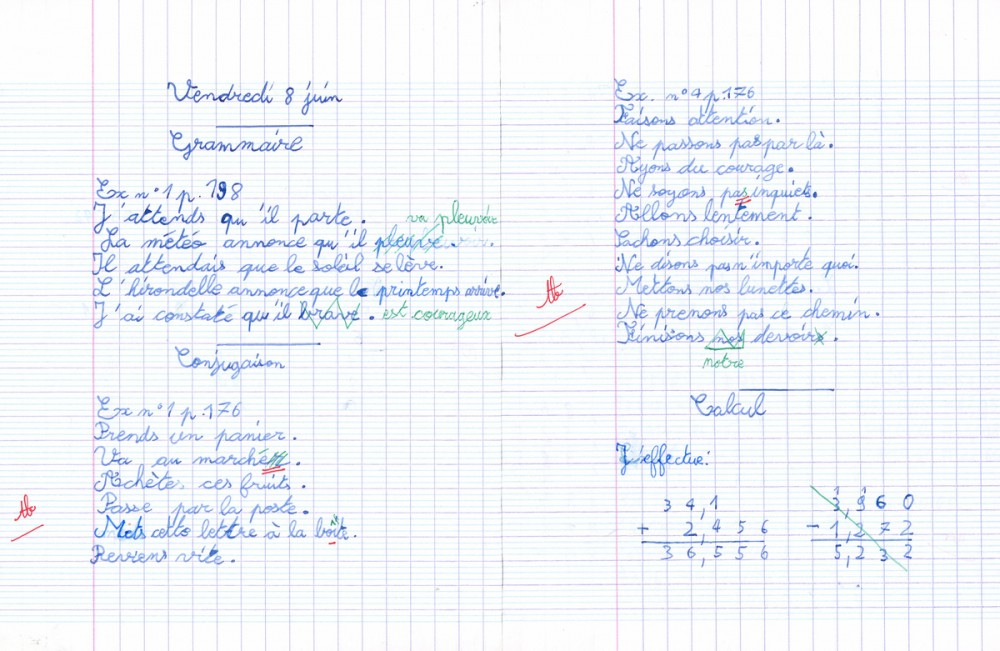 Vendredi 8 juin
Grammaire
Ex n°1 p.198
J'attends qu'il parte.
va pleuvoir
La météo annonce qu'il pleuve
Il attendais que le soleil se lève.
L'hirondelle annonce que le printemps arrive.
J'ai constaté qu'il brave. est courageux
Conjugaison
Ex n°1 p.176
Prends un panier.
Va au marché.
Achètes ces fruits.
Passe par la poste.
tb
Mets cette lettre à la boîte.
Reviens vite.
Ex. n°4 p.176
Faisons attention.
Ne passons pas par là.
Ayons du courage.
Ne soyons pas inquiets.
Allons lentement.
Sachons choisir.
Ne disons pas n'importe quoi.
tb
Mettons nos lunettes.
Ne prenons pas ce chemin.
Finisons nos devoirs.
notre
Calcul
J'effectue:
3 4,1
+ 2,4 5 6
3 6,5 5 6
3,9 6 0
- 1,2 7 2
5,2 3 2